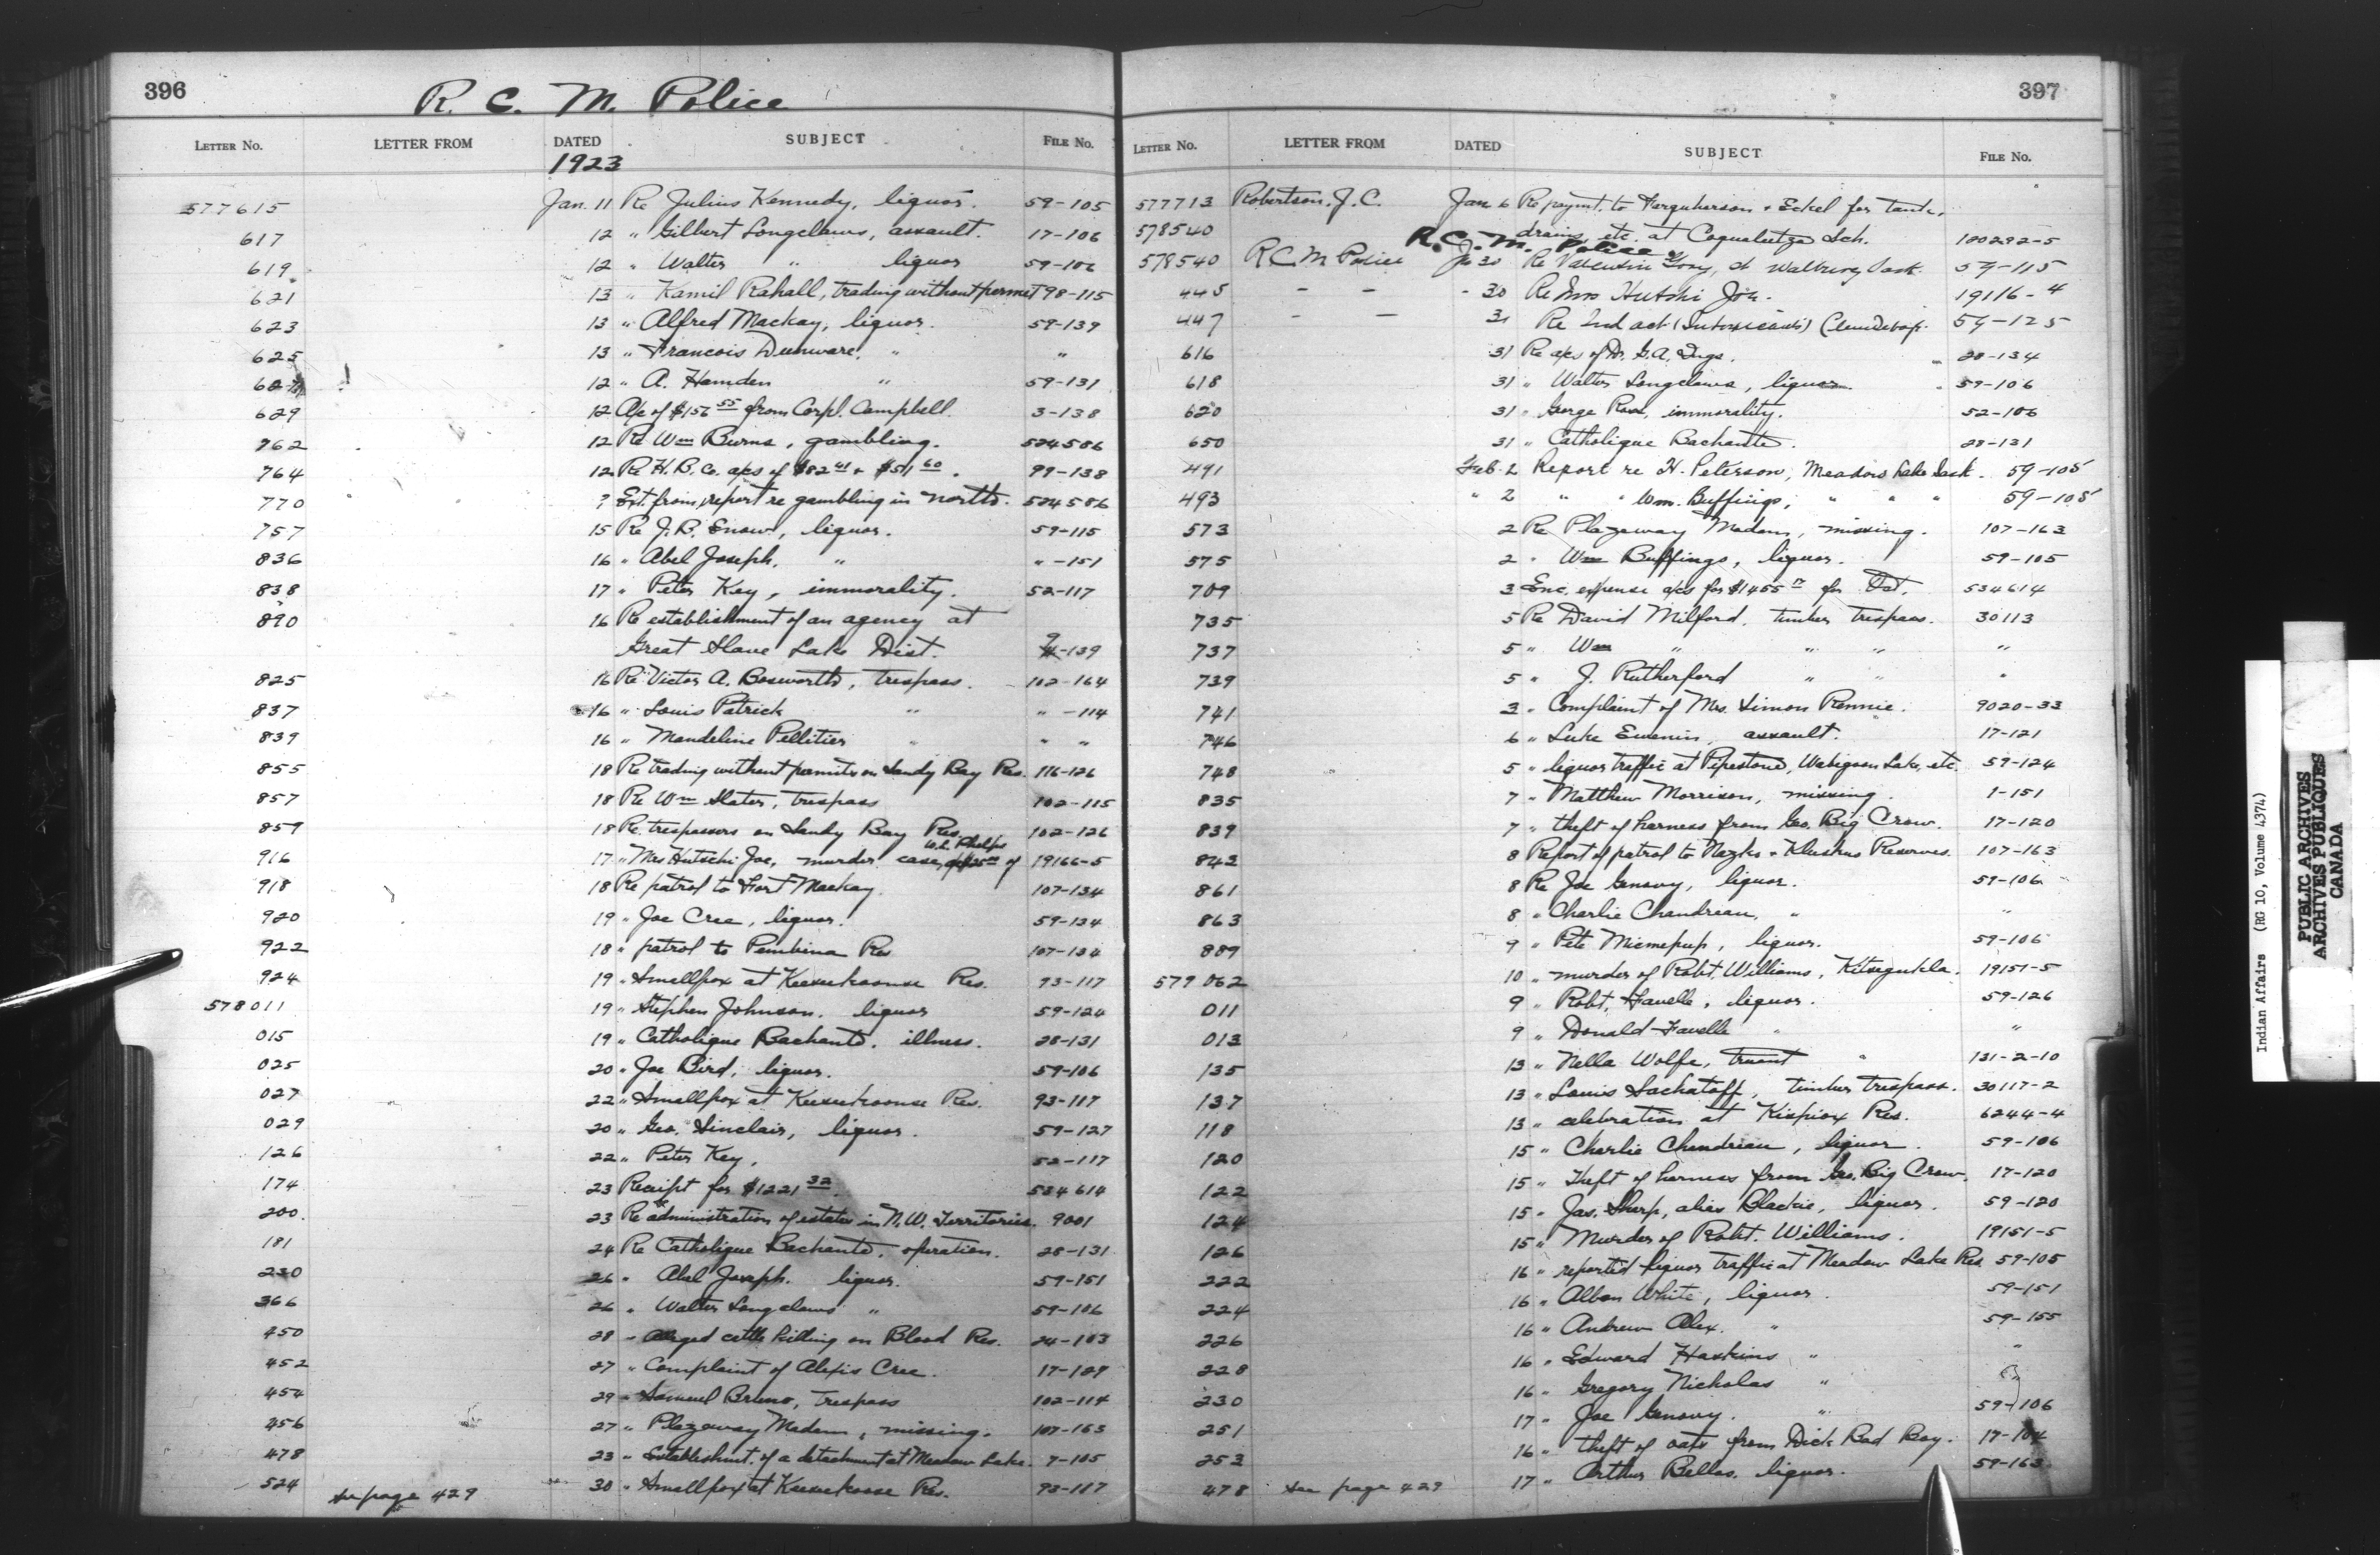 396
R. C. M. Police
LETTER No. LETTER FROM DATED SUBJECT FILE No.
1923
577615 Jan. 11 Re Julius Kennedy, liquor. 59-105
617 12 " Gilbert Longclaws, assault. 17-106
619 12 " Walter " liquor 59-106
621 13 " Kamil Rahall, trading without permit 98-115
623 13 " Alfred Mackay, liquor. 59-139
625 13 " Francois Dunware, " "
627 12 " A. Hamden " 59-131
629 12 A/c of $156 55 from Corpl. Campbell. 3-138
762 12 Re Wm Burns, gambling. 524586
764 12 Re H. B. Co. a/cs of $82 41 + $511 60. 99-138
770 ? Ext. from report re gambling in north. 524586
757 15 Re J. B. Snow, liquor. 59-115
836 16 " Abel Joseph, " " -151
838 17 " Peter Key, immorality. 52-117
890 16 Re establishment of an agency at
Great Slave Lake Dist. -139
825 16 Re Victor A. Bosworth, trespass. 102-164
837 16 " Louis Patrick " " -114
839 16 " Mandeline Pellitier " " "
855 18 Re trading without permits on Sandy Bay Res. 116-126
857 18 Re Wm Slater, trespass 102-115
859 18 Re trespassers on Sandy Bay Res. 102-126
W.L. Phelps
916 17 " Mrs Hutschi Joe, murder case, of 19166-5
918 18 Re patrol to Fort Mackay. 107-134
920 19 " Joe Cree, liquor. 59-134
922 18 " patrol to Pembina Res 107-134
924 19 " Smallpox at Keesekoonse Res. 93-117
578011 19 " Stephen Johnson. liquor 59-124
015 19 " Catholique Bachante, illness. 28-131
025 20 " Joe Bird, liquor. 59-106
027 22 " Smallpox at Keesekoonse Res. 93-117
029 20 " Geo. Sinclair, liquor. 59-127
126 22 " Peter Key, 52-117
174 23 Receipt for $1221 32. 534614
200. 23 Re administration of estates in N.W. Territories. 9001
181 24 Re Catholique Bachante, operation. 28-131
230 26 " Abel Joseph. liquor. 59-151
366 26 " Walter Longclaws " 59-106
450 28 " Alleged cattle killing on Blood Res. 24-103
452 27 " Complaint of Alexis Cree. 17-127
454 29 " Samuel Bruno, trespass 102-114
456 27 " Plazaway Madam, missing. 107-163
478 23 " Establishmt. of a detachment at Meadow Lake. 7-105
524 see page 429 30 " Smallpox at Keesekoose Res. 93-117
397
LETTER No. LETTER FROM DATED SUBJECT FILE No.
577713 Robertson, J. C. Jan 6 Re paymt. to Farquherson + Eckel for tank,
578540 drains, etc. at Coqualeetza Sch. 180292-5
R. C. M. Police
578540 R C M Police Ja 30 Re Valentine Gray, of Walburg Sask. 59-115
445 - - - 30 Re Mrs Hutshi Joe. 19116-4
447 - - 31 Re Ind act (Intoxicants) 59-125
616 31 Re a/cs of Dr. G.A. 28-134
618 31 " Walter Longclaws, liquor. 59-106
620 31 " George Ross, immorality. 52-106
650 31 " Catholique Bachante. 28-131
491 Feb. 2 Report re H. Peterson, Meadow Lake Sask. 59-105
493 " 2 " " Wm. Buffings, " " " 59-105
573 2 Re Plazaway Madam, missing. 107-163
575 2 " Wm Buffings, liquor. 59-105
709 3 Enc. expense a/cs for $1455 for Oct. 534614
735 5 Re David Milford, timber trespass. 30113
737 5 " Wm " " " "
739 5 " J. Rutherford " " "
741 3 " Complaint of Mrs. Simon Rennie. 9020-33
746 6 " Luke Ewenin, assault. 17-121
748 5 " liquor traffic at Pipestone, Wabigoon Lake, etc. 59-124
835 7 " Matthew Morrison, missing. 1-151
839 7 " theft of harness from Geo. Big Crow. 17-120
842 8 Report of patrol to Nazko + Kluskus Reserves. 107-163
861 8 Re Joe Genavy, liquor. 59-106
863 8 " Charlie Chandreau, " "
889 9 " Pete Micmepup, liquor. 59-106
579062 10 " murder of Robt. Williams, Kitsegukla. 19151-5
011 9 " Robt. Favelle, liquor. 59-126
013 9 " Donald Favelle " "
135 13 " Nella Wolfe, truant " 131-2-10
137 13 " Louis Sackatoff, timber trespass. 30117-2
118 13 " celebration at Kispiox Res. 6244-4
120 15 " Charlie Chandrian, liquor. 59-106
122 15 " Theft of harness from Geo. Big Crow. 17-120
124 15 " Jas. Sharp, alias Blackie, liquor. 59-120
126 15 " Murder of Robt. Williams. 19151-5
222 16 " reported liquor traffic at Meadow Lake Res. 59-105
224 16 " Alban White, liquor. 59-151
226 16 " Andrew Alex. " 59-155
228 16 " Edward Haskins " "
230 16 " Gregory Nicholas "
251 17 " Joe Genavy. " 59-106
253 16 " theft of oats from Dick Bad Boy. 17-104
478 see page 429 17 " Arthur Bellas. liquor. 59-163
Indian Affairs (RG 10, Volume 4374)
PUBLIC ARCHIVES
ARCHIVES PUBLIQUES
CANADA